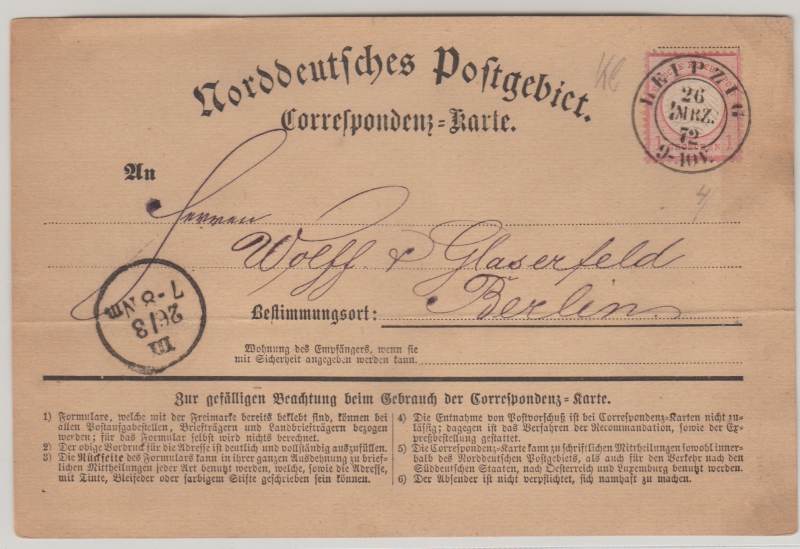 Norddeutsches Postgebiet.
Correspondenz=Karte.
LEIPZIG
26
MRZ.
72
9-10V.
1 GROSCHEN 1
An
Herren
Wolff & Glaserfeld
Bestimmungsort: Berlin
III
26/3
7-8 Nm
Wohnung des Empfängers, wenn sie
mit Sicherheit angegeben werden kann.
Zur gefälligen Beachtung beim Gebrauch der Correspondenz=Karte.
1) Formulare, welche mit der Freimarke bereits beklebt sind, können bei
allen Postaufgabestellen, Briefträgern und Landbriefträgern bezogen
werden; für das Formular selbst wird nichts berechnet.
2) Der obige Vordruck für die Adresse ist deutlich und vollständig auszufüllen.
3) Die Rückseite des Formulars kann in ihrer ganzen Ausdehnung zu brief=
lichen Mittheilungen jeder Art benutzt werden, welche, sowie die Adresse,
mit Tinte, Bleifeder oder farbigem Stifte geschrieben sein können.
4) Die Entnahme von Postvorschuß ist bei Correspondenz=Karten nicht zu=
lässig; dagegen ist das Verfahren der Recommandation, sowie der Ex=
preßbestellung gestattet.
5) Die Correspondenz=Karte kann zu schriftlichen Mittheilungen sowohl inner=
halb des Norddeutschen Postgebiets, als auch für den Verkehr nach den
Süddeutschen Staaten, nach Oesterreich und Luxemburg benutzt werden.
6) Der Absender ist nicht verpflichtet, sich namhaft zu machen.